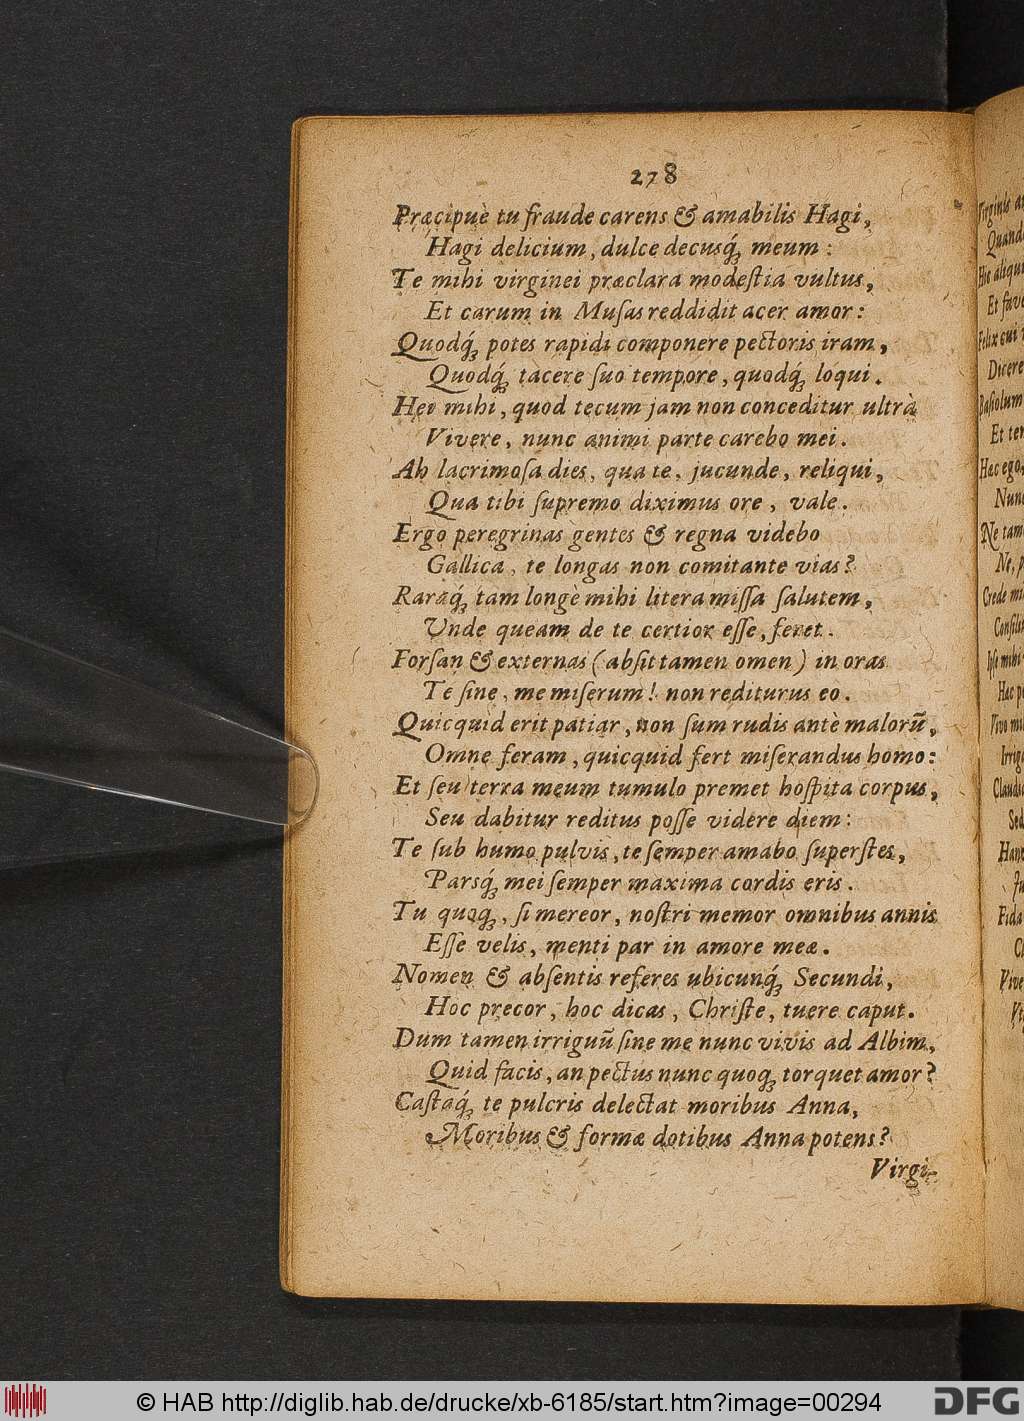 278
Præcipuè tu fraude carens & amabilis Hagi,
Hagi delicium, dulce decusq́; meum:
Te mihi virginei præclara modeſtia vultus,
Et carum in Muſas reddidit acer amor:
Quodq́; potes rapidi componere pectoris iram,
Quodq́; tacere ſuo tempore, quodq́; loqui.
Hei mihi, quod tecum jam non conceditur ultrà
Vivere, nunc animi parte carebo mei.
Ah lacrimoſa dies, qua te, jucunde, reliqui,
Qua tibi ſupremo diximus ore, vale.
Ergo peregrinas gentes & regna videbo
Gallica, te longas non comitante vias?
Raraq́; tam longè mihi litera miſſa ſalutem,
Unde queam de te certior eſſe, feret.
Forſan & externas (abſit tamen omen) in oras
Te ſine, me miſerum! non rediturus eo.
Quicquid erit patiar, non ſum rudis antè malorū,
Omne feram, quicquid fert miſerandus homo:
Et ſeu terra meum tumulo premet hoſpita corpus,
Seu dabitur reditus poſſe videre diem:
Te ſub humo pulvis, te ſemper amabo ſuperſtes,
Parsq́; mei ſemper maxima cordis eris.
Tu quoq;, ſi mereor, noſtri memor omnibus annis
Eſſe velis, menti par in amore meæ.
Nomen & abſentis referes ubicunq́; Secundi,
Hoc precor, hoc dicas, Chriſte, tuere caput.
Dum tamen irriguū ſine me nunc vivis ad Albim,
Quid facis, an pectus nunc quoq; torquet amor?
Caſtaq́; te pulcris delectat moribus Anna,
Moribus & formæ dotibus Anna potens?
Virgi-
© HAB http://diglib.hab.de/drucke/xb-6185/start.htm?image=00294
DFG